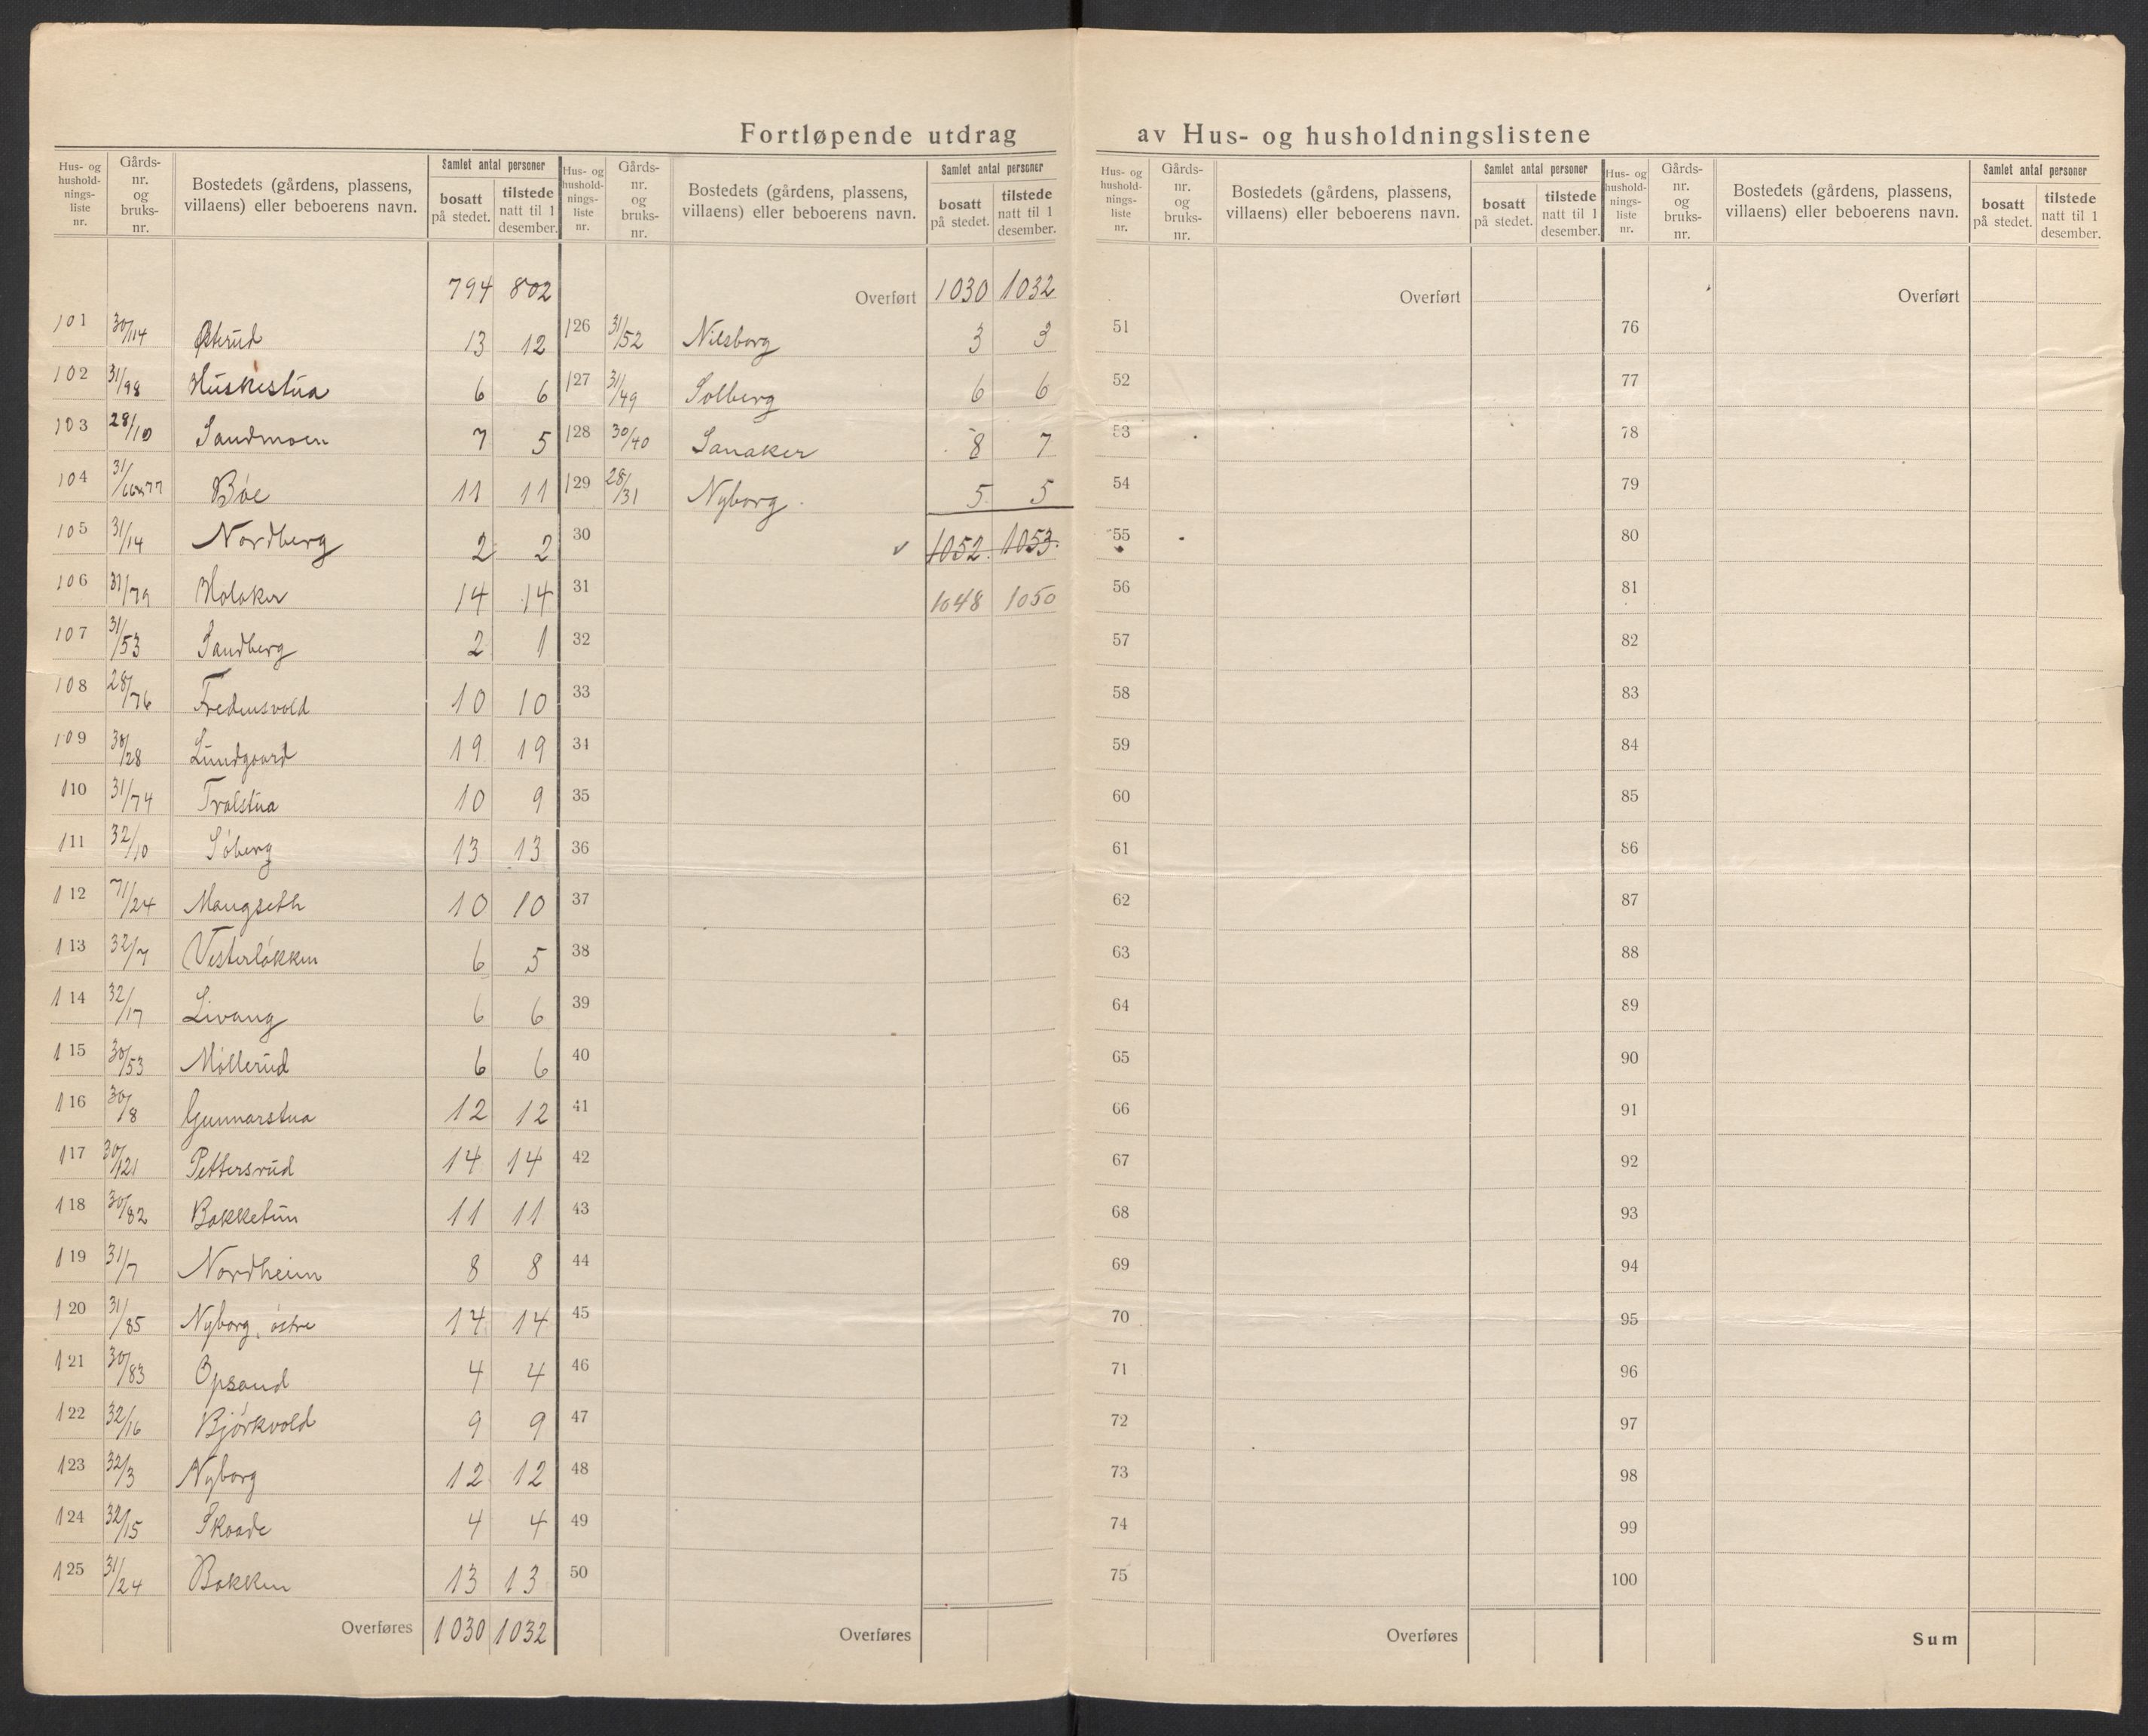 Fortløpende utdrag av Hus- og husholdningslistene
Hus- og husholdningsliste nr. | Gårds- nr. og bruks- nr. | Bostedets (gårdens, plassens, villaens) eller beboerens navn. | Samlet antal personer bosatt på stedet. | tilstede natt til 1 desember.
794 802
101 30/114 Østerud 13 12
102 31/98 Huskestua 6 6
103 28/10 Sandmoen 7 5
104 31/66&77 Bøe 11 11
105 31/14 Nordberg 2 2
106 31/79 Holoker 14 14
107 31/53 Sandberg 2 1
108 28/76 Fredensvold 10 10
109 30/28 Lundgaard 19 19
110 31/74 Trolstua 10 9
111 32/10 Søberg 13 13
112 71/24 Mangseth 10 10
113 32/7 Vesterløkken 6 5
114 32/17 Livang 6 6
115 30/53 Møllerud 6 6
116 30/8 Gunnarstua 12 12
117 30/121 Pettersrud 14 14
118 30/82 Bakketun 11 11
119 31/7 Nordheim 8 8
120 31/85 Nyborg, østre 14 14
121 30/83 Opsand 4 4
122 32/16 Bjørkvold 9 9
123 32/3 Nyborg 12 12
124 32/15 Skaade 4 4
125 31/24 Bakken 13 13
Overføres 1030 1032
Hus- og husholdningsliste nr. | Gårds- nr. og bruks- nr. | Bostedets (gårdens, plassens, villaens) eller beboerens navn. | Samlet antal personer bosatt på stedet. | tilstede natt til 1 desember.
Overført 1030 1032
126 31/52 Nilsborg 3 3
127 31/49 Solberg 6 6
128 30/40 Sanaker 8 7
129 28/31 Nyborg 5 5
30 ✓ 1052 1053
31 1048 1050
32
33
34
35
36
37
38
39
40
41
42
43
44
45
46
47
48
49
50
Overføres
Hus- og husholdningsliste nr. | Gårds- nr. og bruks- nr. | Bostedets (gårdens, plassens, villaens) eller beboerens navn. | Samlet antal personer bosatt på stedet. | tilstede natt til 1 desember.
Overført
51
52
53
54
55
56
57
58
59
60
61
62
63
64
65
66
67
68
69
70
71
72
73
74
75
Overføres
Hus- og husholdningsliste nr. | Gårds- nr. og bruks- nr. | Bostedets (gårdens, plassens, villaens) eller beboerens navn. | Samlet antal personer bosatt på stedet. | tilstede natt til 1 desember.
Overført
76
77
78
79
80
81
82
83
84
85
86
87
88
89
90
91
92
93
94
95
96
97
98
99
100
Sum